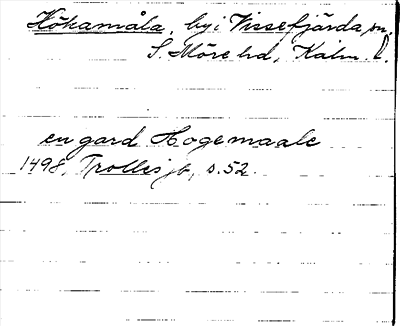 Hökamåla, by i Vissefjärda sn.
S. Möre hd, Kalm. l.
en gard Hogemaale
1498, Trolles jb, s. 52.